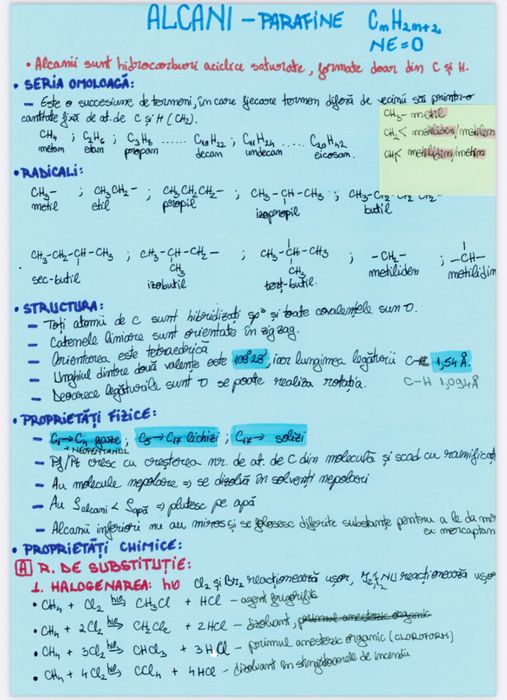 ALCANI – PARAFINE CnH2n+2
NE=0
• Alcanii sunt hidrocarburi aciclice saturate, formate doar din C și H.
• SERIA OMOLOAGĂ:
– Este o succesiune de termeni, în care fiecare termen diferă de vecinii săi printr-o
cantitate fixă de at. de C și H (CH2).
CH4 ; C2H6 ; C3H8 ..... C10H22 ; C11H24 ..... C20H42
metan etan propan decan undecan eicosan.
CH3– metil
CH2< metiliden/metilen
CH< metilidin/metin
• RADICALI:
CH3– ; CH3CH2– ; CH3CH2CH2– ; CH3–CH–CH3 ; CH3–CH2–CH2–CH2–
metil etil propil izopropil butil
CH3–CH2–CH–CH3 ; CH3–CH–CH2– ; CH3–C–CH3 ; –CH2– ; –CH–
CH3 CH3
sec-butil izobutil terț-butil metiliden metilidin
• STRUCTURA:
– Toți atomii de C sunt hibridizați sp3 și toate covalențele sunt σ.
– Catenele liniare sunt orientate în zig zag.
– Orientarea este tetraedrică
– Unghiul dintre două valențe este 109°28', iar lungimea legăturii C–C 1,54 Å.
– Deoarece legăturile sunt σ se poate realiza rotația. C–H 1,094 Å
• PROPRIETĂȚI FIZICE:
– C1→C4 gaze ; C5→C17 lichizi ; C17→ solizi
+ NEOPENTANUL
– Pf/Pt cresc cu creșterea nr. de at. de C din moleculă și scad cu ramificați
– Au molecule nepolare ⇒ se dizolvă în solvenți nepolari
– Au ρalcani < ρapă ⇒ plutesc pe apă
– Alcanii inferiori nu au miros și se folosesc diferite substanțe pentru a le da mir
ex: mercaptan
• PROPRIETĂȚI CHIMICE:
A R. DE SUBSTITUȚIE:
1. HALOGENAREA: hν Cl2 și Br2 reacționează ușor, reacționează ușor
• CH4 + Cl2 hν→ CH3Cl + HCl – agent frigorific
• CH4 + 2Cl2 hν→ CH2Cl2 + 2HCl – dizolvant, primul anestezic organic
• CH4 + 3Cl2 hν→ CHCl3 + 3HCl – primul anestezic organic (CLOROFORM)
• CH4 + 4Cl2 hν→ CCl4 + 4HCl – dizolvant în stingătoarele de incendiu